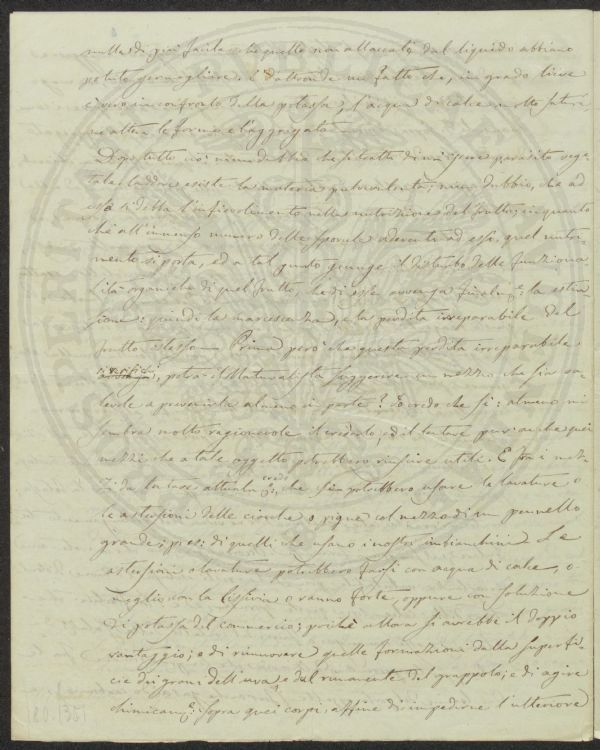 nulla di più facile che quelle non attaccate dal liquido abbiano
potuto germogliare. È d'altronde un fatto che, in grado lieve
è vero in confronto della potassa, l'acqua di calce molto satura
ne altera le forme e l'aggregato
Dopo tutto ciò niun dubbio che si tratti di un essere parasito vege-
tale laddove esiste la materia pulverulenta; niun dubbio, che ad
essa si debba l'infievolimento nella nutrizione del frutto; in quanto
chè all'immenso numero delle sporule aderenti ad esso, quel nutri-
mento si porta, ed a tal punto giunge il disturbo delle funziona
lità organiche di quel frutto, che di esse avvenga finalme: la estin-
sione: quindi la marcescenza, e la perdita irreparabile del
frutto stesso Prima però che questa perdita irreparabile
si verifichi, potrà il Naturalista suggerire un mezzo che sia va-
levole a prevenirla almeno in parte? Io credo che sì: almeno mi
sembra molto ragionevole il crederlo, ed il tentare pur anche quei
mezzi che a tale oggetto potrebbero riuscire utili. E fra i mez-
zi da tentarsi attualme: credo, che si potrebbero usare le lavature o
le astersioni delle ciocche o pigne col mezzo di un pennello
grande; presi di quelli che usano i nostri imbianchini Le
astersioni o lavature potrebbero farsi con acqua di calce, o
meglio con la lisivia o ranno forte, oppure con soluzione
di potassa del commercio; poichè allora si avrebbe il doppio
vantaggio; e di rimuovere quelle formazioni dalla superfi-
cie dei grani dell'uva, e dal rimanente del grappolo; e di agire
chimicame: sopra quei corpi, affine di impedirne l'ulteriore